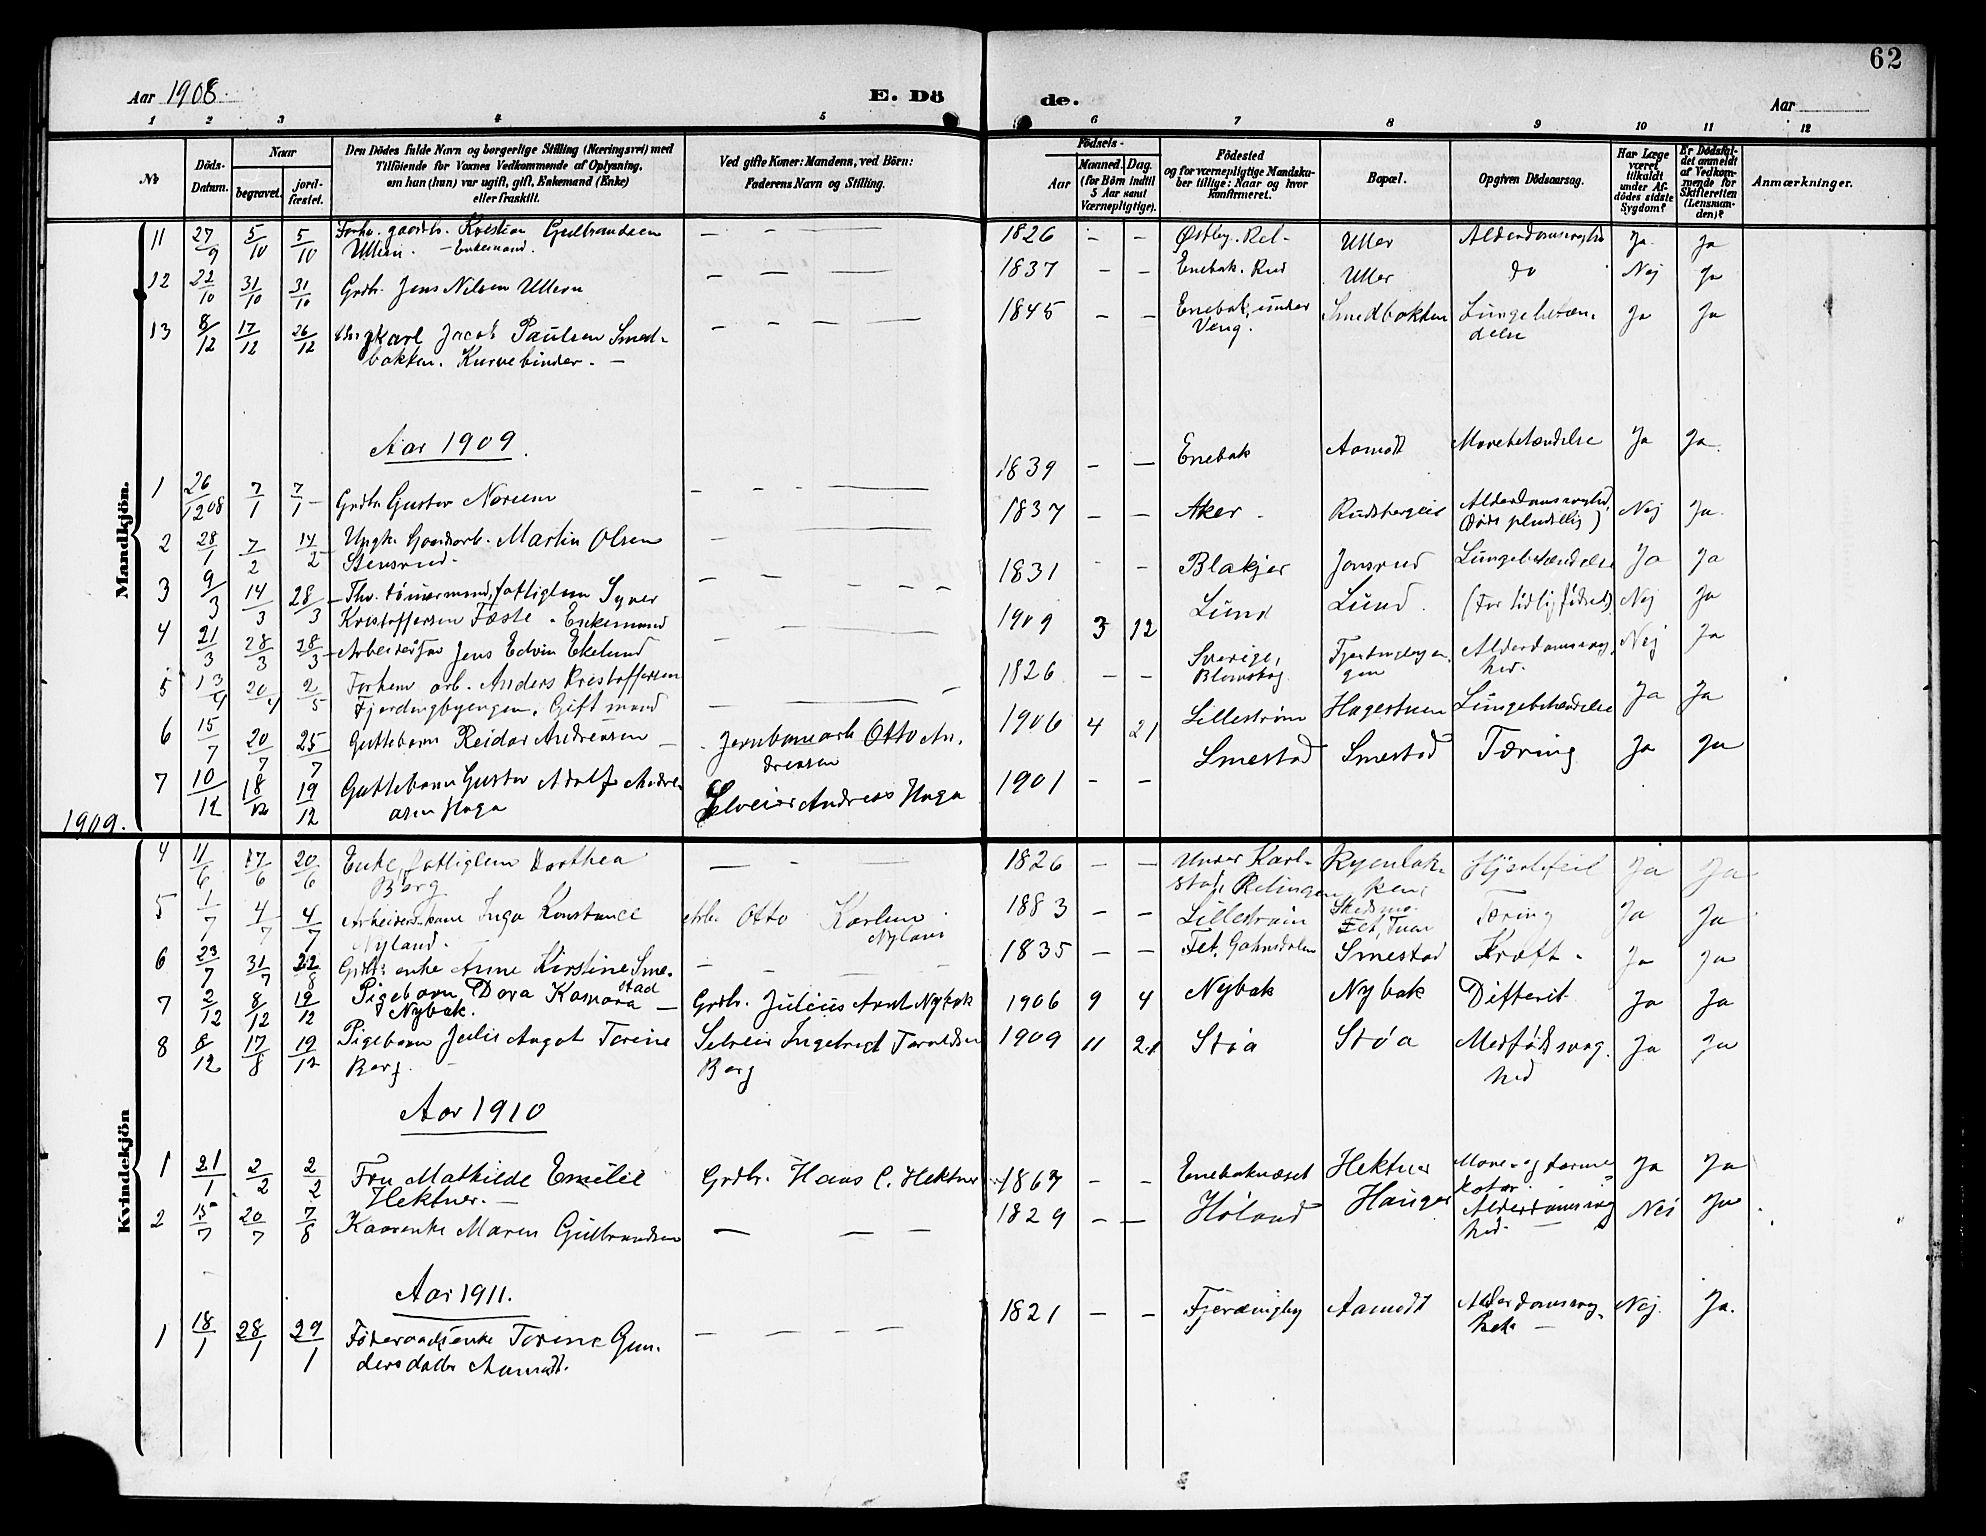 62
Aar 1908. E. Dö de. Aar
1 2 3 4 5 6 7 8 9 10 11 12
№ Döds-Datum. Naar begravet. jord-fæstet.
Den Dödes fulde Navn og borgerlige Stilling (Næringsvei) med
Tilföiende for Voxnes Vedkommende af Oplysning,
om han (hun) var ugift, gift, Enkemand (Enke)
eller fraskilt.
Ved gifte Koner: Mandens, ved Börn:
Faderens Navn og Stilling.
Födsels-
Aar Maaned. Dag.
(for Börn indtil
5 Aar samt
Værnepligtige).
Födested
og for værnepligtige Mandska-
ber tillige: Naar og hvor
konfirmeret.
Bopæl.
Opgiven Dödsaarsag.
Har Læge
været
tilkaldt
under Af-
dödes sidste
Sygdom?
Er Dödsfal-
det anmeldt
af Vedkom-
mende for
Skifteretten
(Lensman-
den)?
Anmærkninger.
Mandkjön.
11 27/9 5/10 5/10 Forhv. gaardbr. Kristian Gulbrandsen — — — 1826 – – Østby. Rel- Uller Alderdomssvaghed Ja. Ja
Ullern. – Enkemand.
12 22/10 31/10 31/10 Grdbr. Jens Nilsen Ullern — — — 1837 – – Enebak. Rud Uller do Nej Ja
13 8/12 17/12 26/12 Ungkarl Jacob Paulsen Smed- — — — 1845 – – Enebak, under Smedbakken Lungebetæn- Ja Ja
bakken. Kurvebinder. – Veng. delse
Aar 1909.
1 26/12 08 7/1 7/1 – Grdbr Gustav Noreem – – – 1839 – — Enebak Aamodt Mavebetændelse Ja Ja.
2 28/1 7/2 14/2 Ungk. Gaardarb. Martin Olsen – 1837 – – Aker – Alderdomssvaghed, Nej Ja.
Stensrud. (Døde pludselig)
3 9/3 14/3 28/3 – Fhv. tømmermand, fattiglem Syver – – – 1831 – – Blakjer Jonsrud Lungebetændelse Ja Ja
Kristoffersen Fæste – Enkemand
4 21/3 28/3 28/3 – Jens Edvin Ekelund – 1909 3 12 Lund Lund. (For tidlig født) Nej Ja
5 13/4 20/4 2/5 Forhenv arb. Anders Kristoffersen – 1826 – – Sverige, Alderdomssvag- Nej Ja
Fjerdingbyengen. Gift mand Blomskog. hed.
6 15/7 20/7 25/7 Guttebarn Reidar Andreasen — Jernbanearb Otto An- 1906 4 21 Lillestrøm Hagestuen Lungebetændelse Ja Ja
dreasen
7 10/12 18/12 19/12 Guttebarn Gustav Adolf Andre- Selveier Andreas Haga 1901 – – Smestad Smestad Tæring Ja Ja
asen Haga
1909.
Kvindekjön
4 11/6 17/6 20/6 Enke, fattiglem Dorthea — – — 1826 – – Under Karl- Ryenbak- Hjertefeil Ja Ja
Berg stad, Relingen ken
5 1/7 4/7 4/7 Arbeiderskone Inga Konstance Arb. Otto Karlsen 1883 – – Lillestrøm Skedsmo. Tæring Ja Ja
Nyland. Nyland Fet,
6 23/7 31/7 22/8 Grdbr: enke Anne Kirstine Sme- – – 1835 – – Fet, Smestad Kræft – Ja Ja
stad
7 2/12 8/12 19/12 Pigebarn Dora Kamora — Grdbr. Julius Arnt Nybak 1906 9 4 Nybak Nybak Difterit Ja Ja
Nybak.
8 8/12 17/8 19/12 Pigebarn Julie Aagot Torine Selveier Ingebrigt Torvaldsen 1909 11 21 Støa Støa Medfødt svag- Ja Ja
Berg. – Berg hed
Aar 1910
1 21/1 2/2 2/2 Fru Mathilde Emilie Grdbr. Hans C. Hektner 1867 – – Enebaknæset Hektner Mave- og tarm- Ja Ja
Hektner. –
2 15/7 20/7 7/8 Kaarenke Maren Gulbrandsen — — – 1829 – — Høland Hauger Alderdomssvag Nei Ja
hed. –
Aar 1911.
1 18/1 28/1 29/1 Føderaadsenke Torine Gun- – – – – 1821 – – Fjerdingby Aamodt Alderdomssvag- Nej. Ja.
dersdatter Aamodt. –